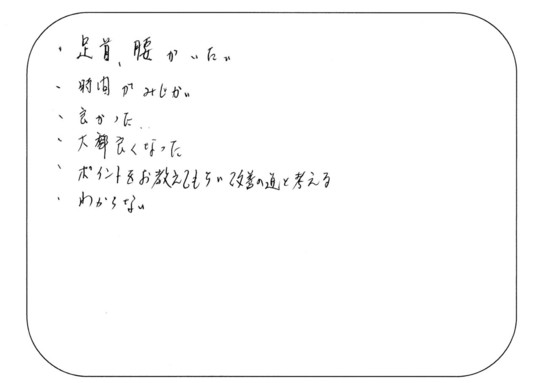 ・足首、腰がいたい
・時間がみじかい
・良かった
・大部良くなった
・ポイントをお教えてもらい改善の道と考える
・わからない